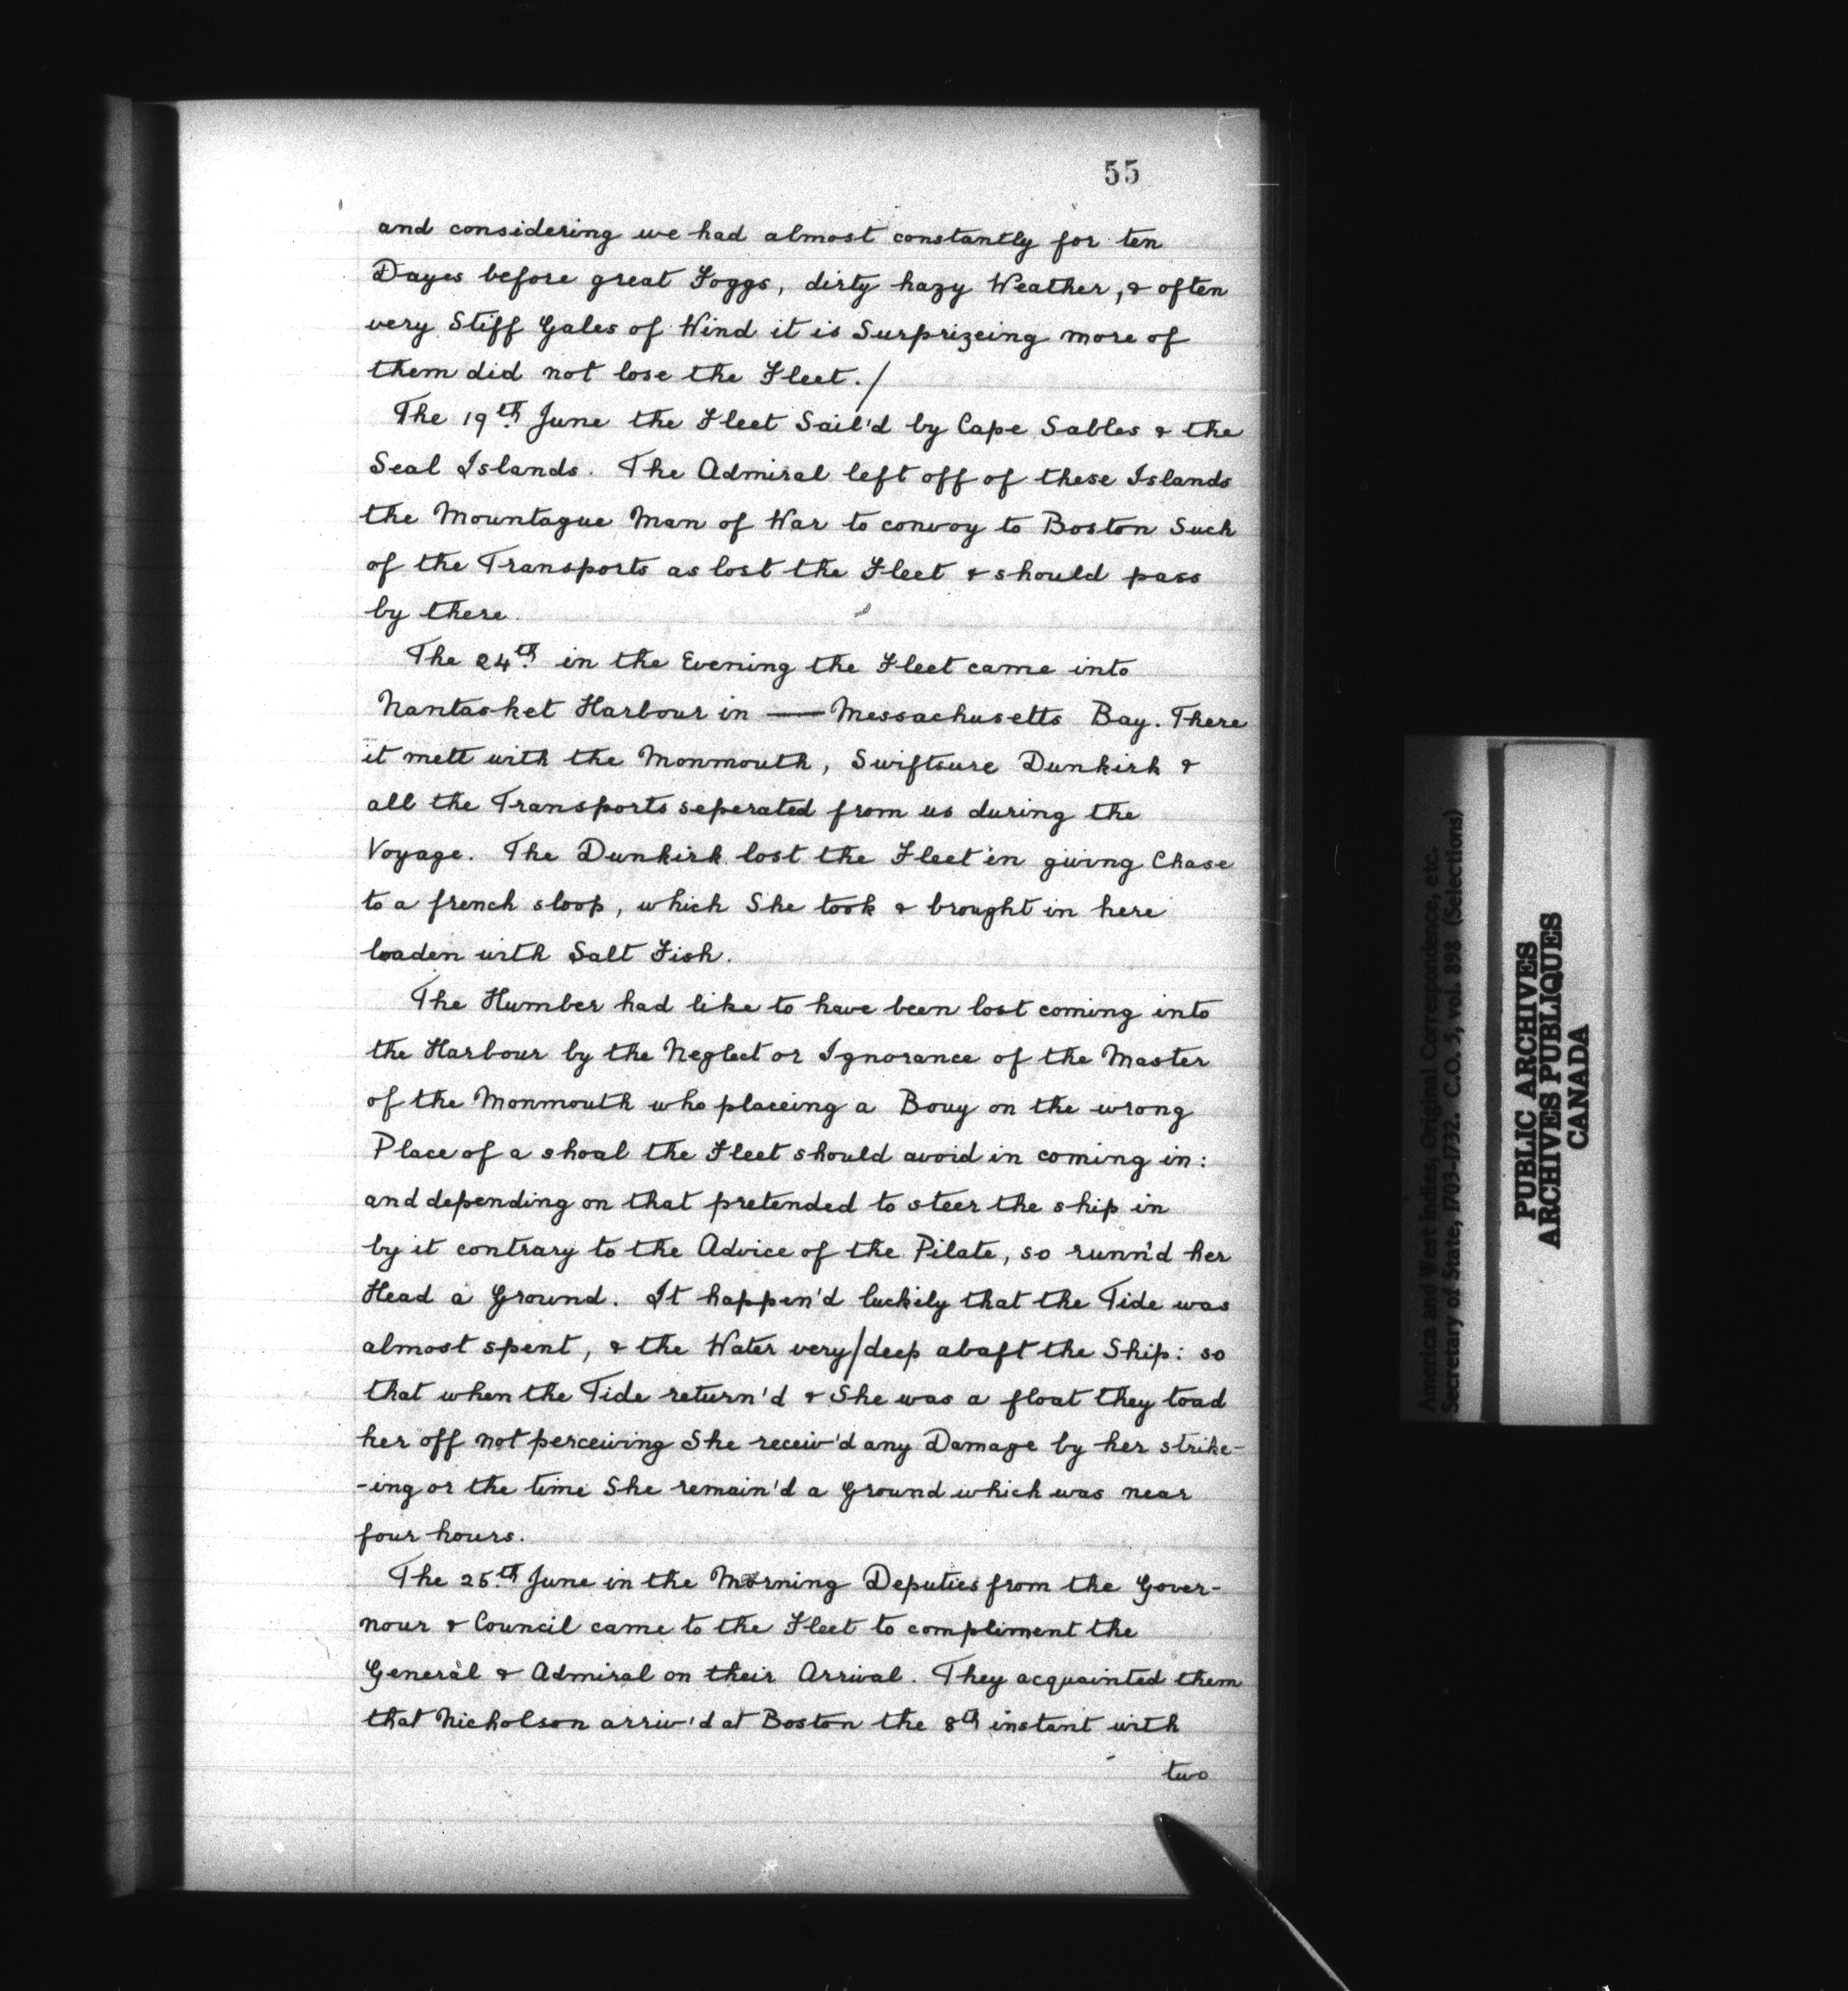 55
and considering we had almost constantly for ten
Dayes before great Foggs, dirty hazy Weather, & often
very Stiff Gales of Wind it is Surprizeing more of
them did not lose the Fleet./
The 19th June the Fleet Sail'd by Cape Sables & the
Seal Islands. The Admiral left off of these Islands
the Mountague Man of War to convoy to Boston Such
of the Transports as lost the Fleet & should pass
by there.
The 24th in the Evening the Fleet came into
Nantasket Harbour in — Messachusetts Bay. There
it mett with the Monmouth, Swiftsure Dunkirk &
all the Transports seperated from us during the
Voyage. The Dunkirk lost the Fleet in giving Chase
to a french sloop, which She took & brought in here
loaden with Salt Fish.
The Humber had like to have been lost coming into
the Harbour by the Neglect or Ignorance of the Master
of the Monmouth who placeing a Bouy on the wrong
Place of a shoal the Fleet should avoid in coming in:
and depending on that pretended to steer the ship in
by it contrary to the Advice of the Pilate, so runn'd her
Head a Ground. It happen'd luckily that the Tide was
almost spent, & the Water very/deep abaft the Ship: so
that when the Tide return'd & She was a float they toad
her off not perceiving She receiv'd any Damage by her strike-
-ing or the time She remain'd a Ground which was near
four hours.
The 25th June in the Morning Deputies from the Gover-
nour & Council came to the Fleet to compliment the
General & Admiral on their Arrival. They acquainted them
that Nicholson arriv'd at Boston the 8th instant with
two
America and West Indies, Original Correspondence, etc.
Secretary of State, 1703-1732. C.O. 5, vol. 898 (Selections)
PUBLIC ARCHIVES
ARCHIVES PUBLIQUES
CANADA